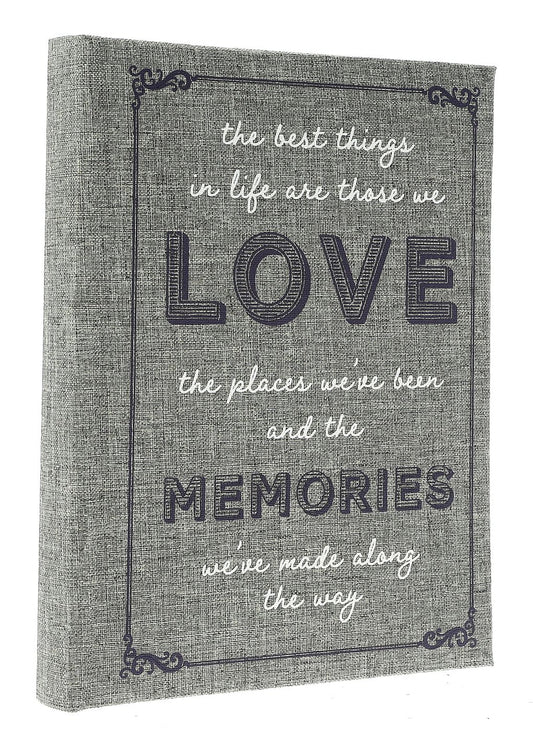 the best things
in life are those we
LOVE
the places we've been
and the
MEMORIES
we've made along
the way